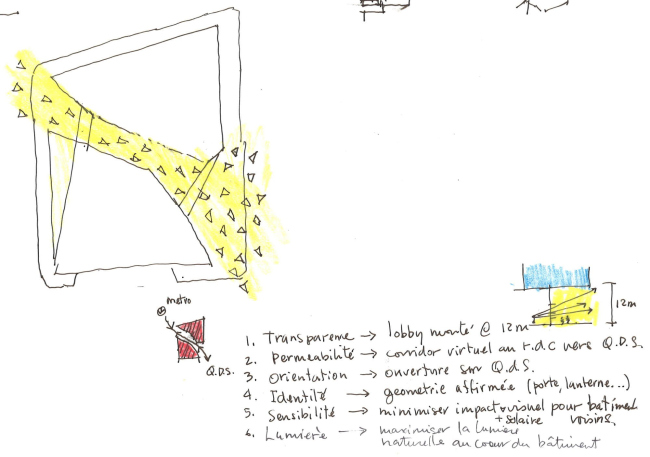 metro
Q.D.S.
12m
1. Transparence → lobby monté @ 12m
2. Permeabilité → corridor virtuel au r.d.c vers Q.D.S.
3. Orientation → ouverture sur Q.d.S.
4. Identité → geometrie affirmée (porte, lanterne...)
5. Sensibilité → minimiser impact visuel pour bâtiment
+ solaire voisins.
6. Lumière → maximiser la lumière
naturelle au coeur du bâtiment